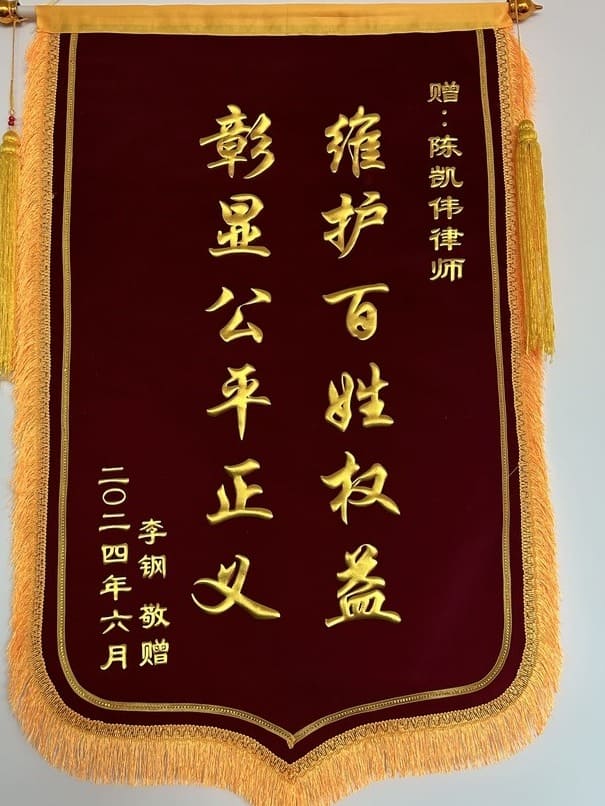 赠：陈凯伟律师
维护百姓权益
彰显公平正义
李钢 敬赠
二〇二四年六月